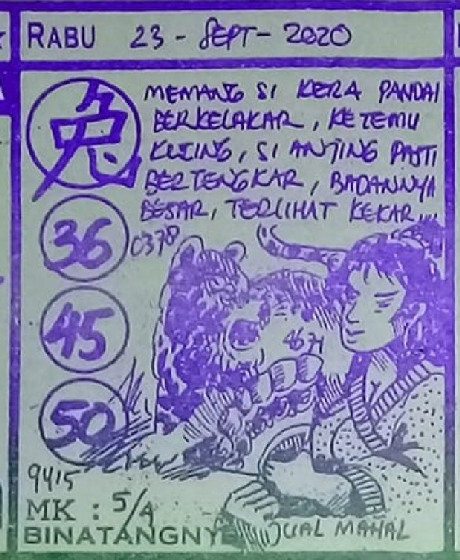 RABU 23 - SEPT - 2020
MEMANG SI KERA PANDAI
BERKELAKAR, KETEMU
KUCING, SI ANJING PASTI
BERTENGKAR, BADANNYA
BESAR, TERLIHAT KEKAR...
兔
36
0378
45
4671
50
9415
MK : 5/4
BINATANGNYE JUAL MAHAL